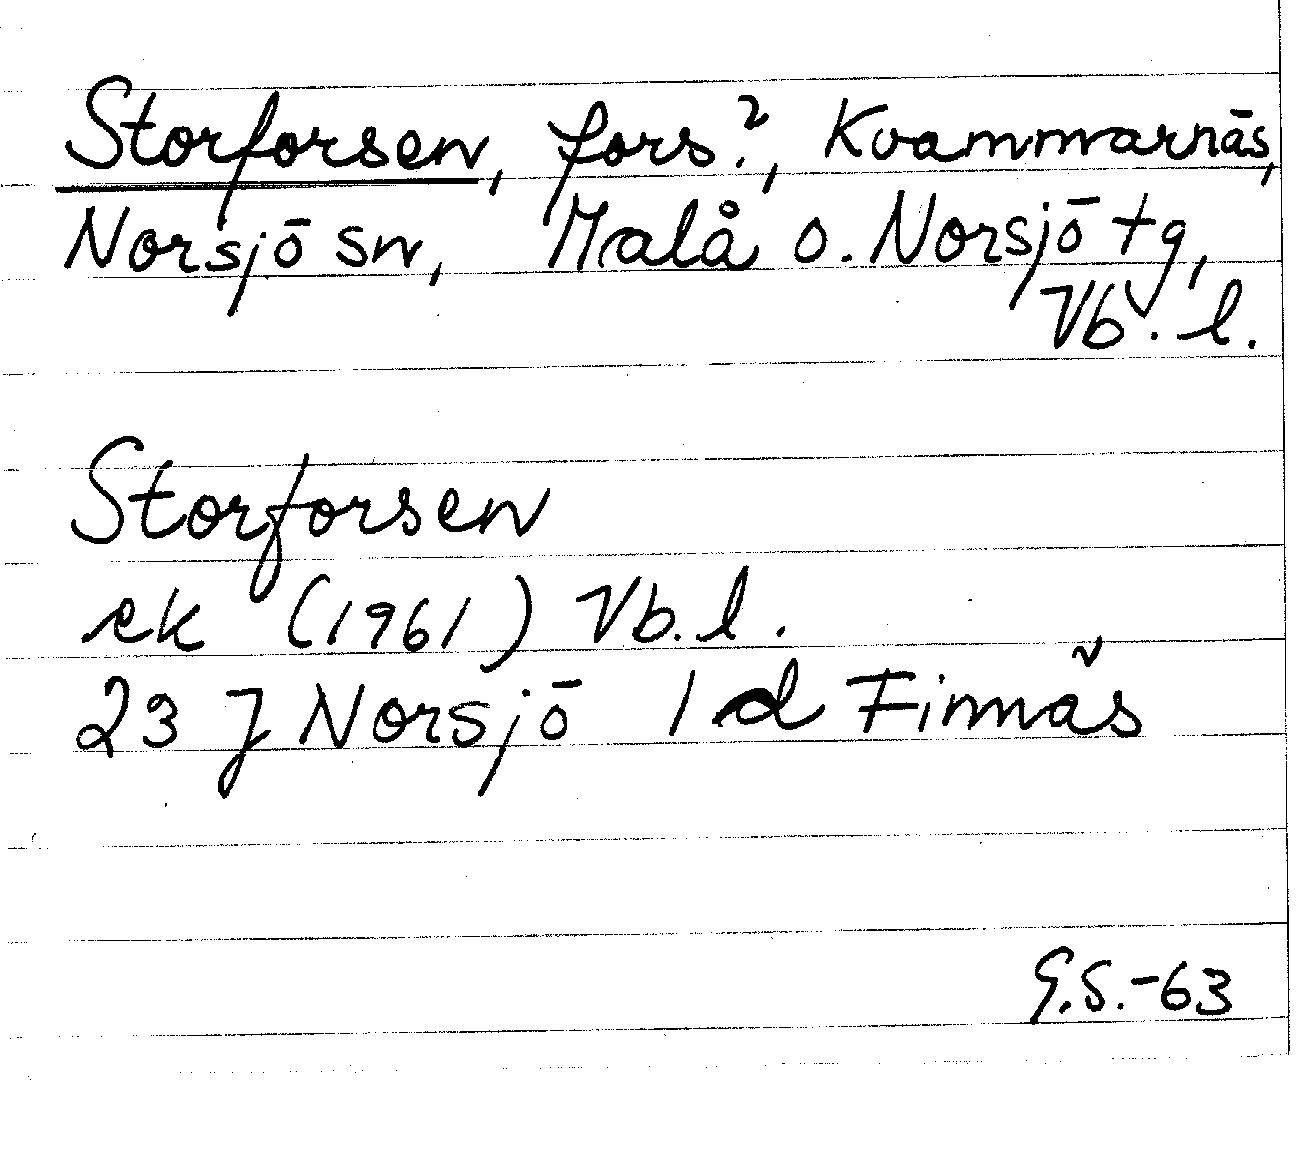 Storforsen, fors?, Kvammarnäs,
Norsjö sn, Malå o. Norsjö tg,
Vb. l.
Storforsen
ek (1961) Vb. l.
23 J Norsjö 1 d Finnäs
G.S.-63